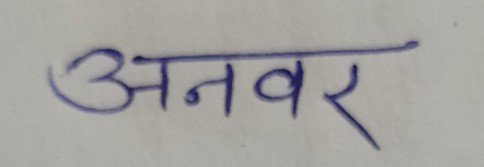 अनवर